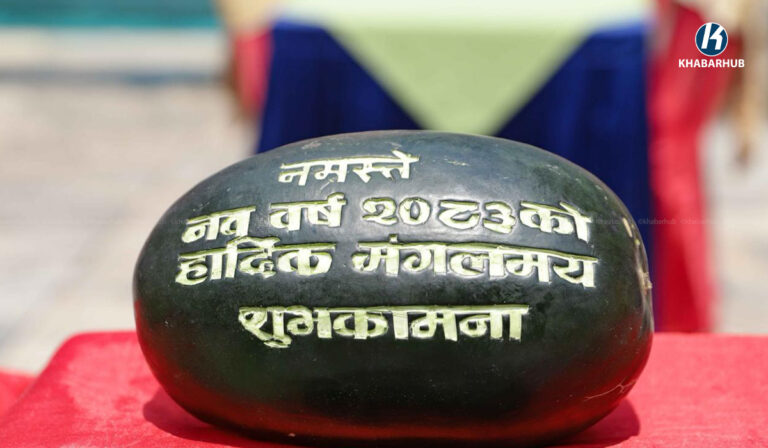 KHABARHUB
नमस्ते
नव वर्ष २०८३को
हार्दिक मंगलमय
शुभकामना